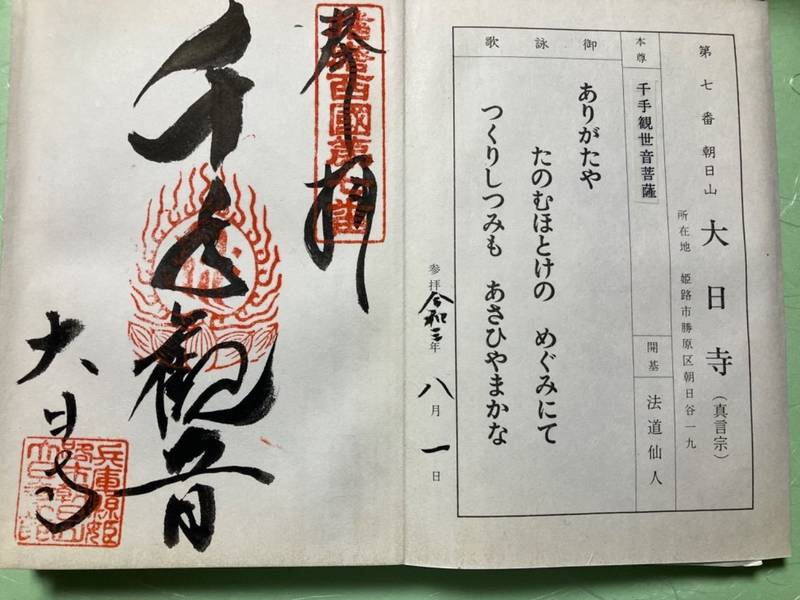 第七番 朝日山
大日寺(真言宗)
所在地 姫路市勝原区朝日谷一九
本尊
千手観世音菩薩
開基 法道仙人
御詠歌
ありがたや
たのむほとけの めぐみにて
つくりしつみも あさひやまかな
参拝 令和三年 八月 一日
奉拝
播磨西國第七番
千手観音
大日寺